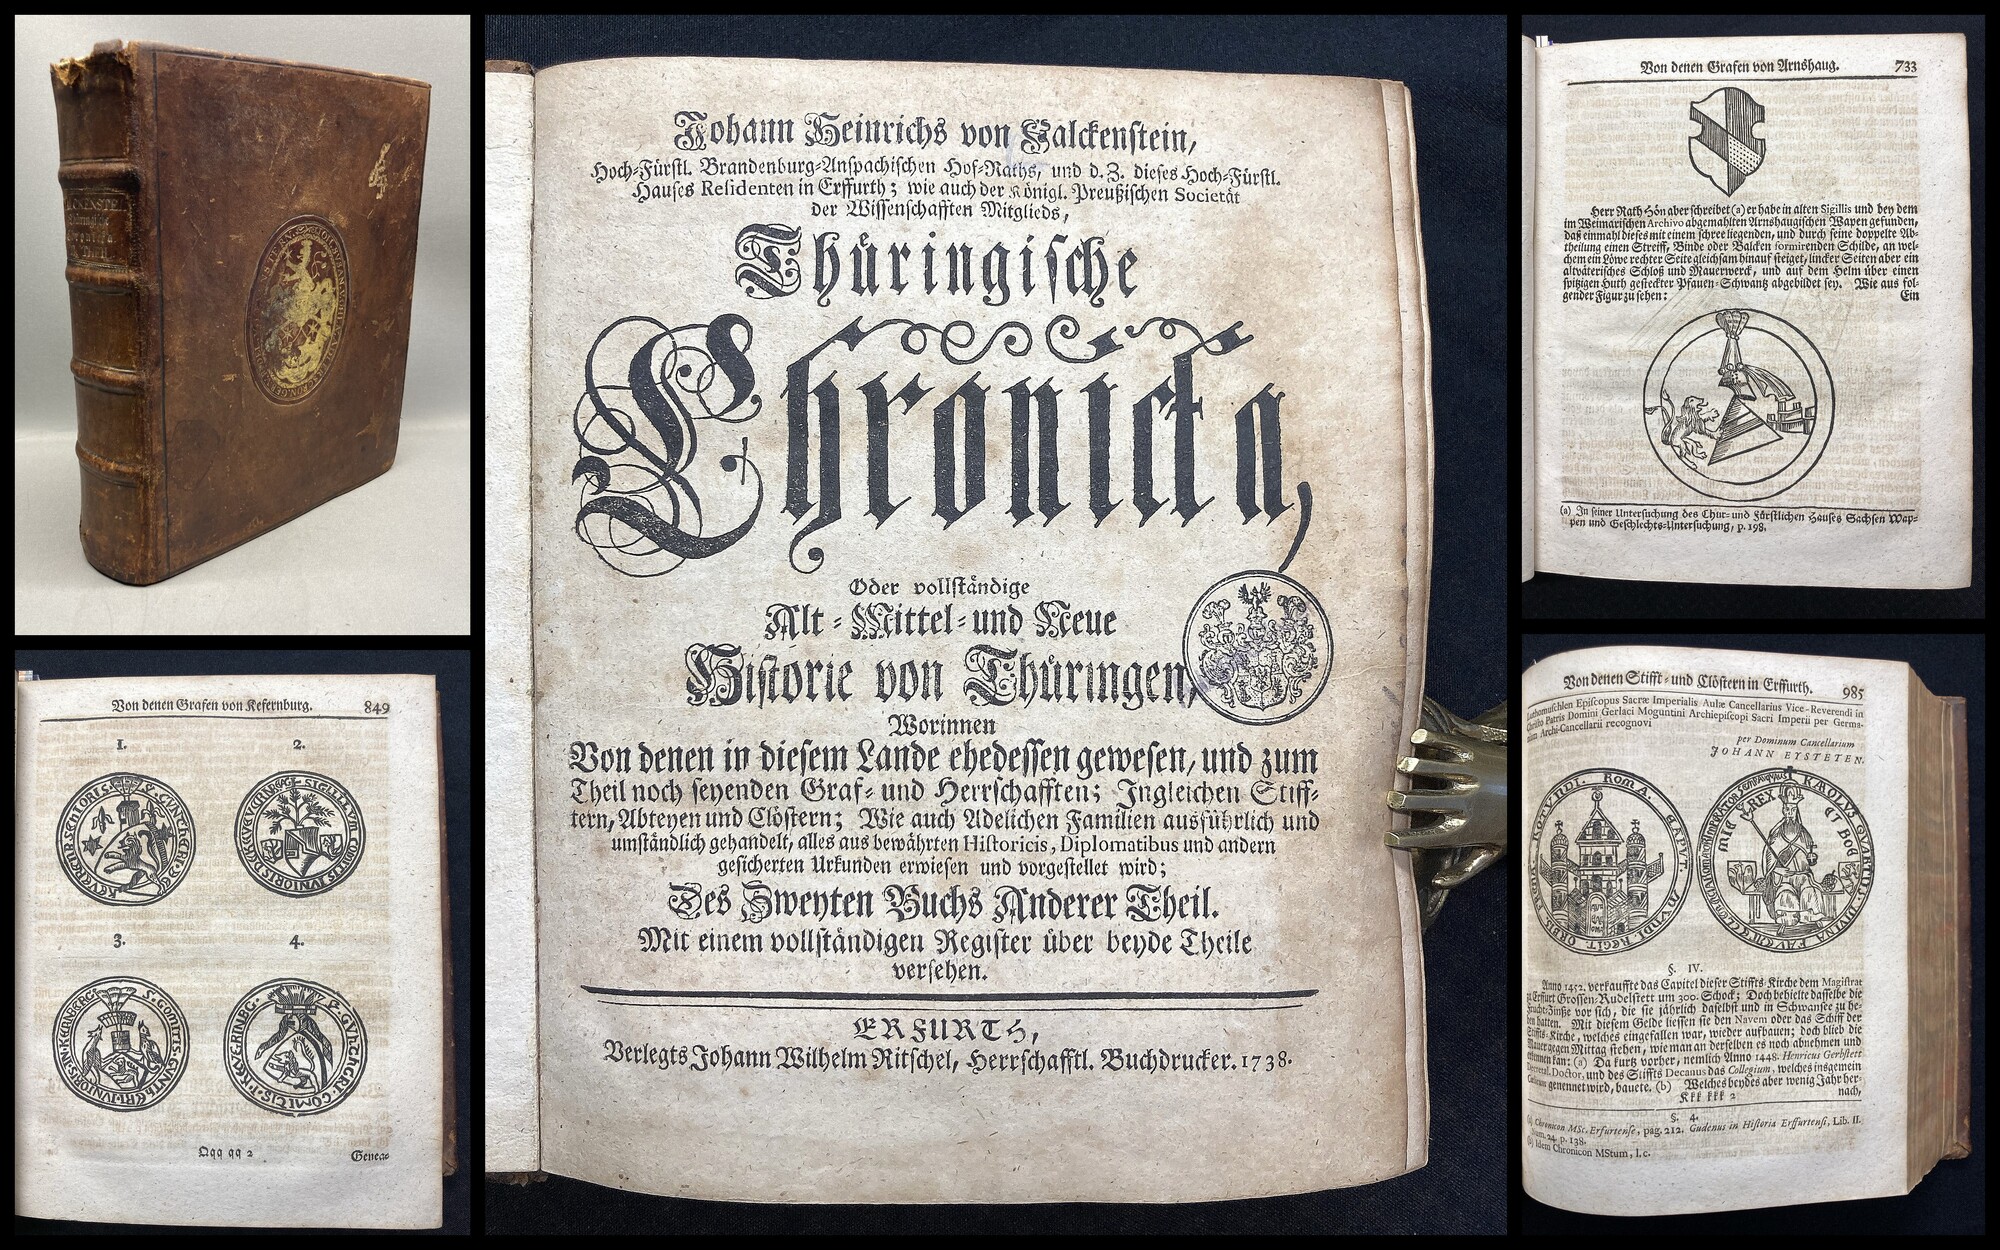 Johann Heinrichs von Falckenstein,
Hoch-Fürstl. Brandenburg-Anspachischen Hof-Raths, und d. Z. dieses Hoch-Fürstl.
Hauses Residenten in Erffurth; wie auch der Königl. Preußischen Societät
der Wissenschafften Mitglieds,
Thüringische
Chronicka,
Oder vollständige
Alt-Mittel-und Neue
Historie von Thüringen,
Worinnen
Von denen in diesem Lande ehedessen gewesen, und zum
Theil noch seyenden Graf- und Herrschafften; Ingleichen Stiff-
tern, Abteyen und Clöstern; Wie auch Adelichen Familien ausführlich und
umständlich gehandelt, alles aus bewährten Historicis, Diplomatibus und andern
gesicherten Urkunden erwiesen und vorgestellet wird;
Des Zweyten Buchs Anderer Theil.
Mit einem vollständigen Register über beyde Theile
versehen.
ERFURTH,
Verlegts Johann Wilhelm Ritschel, Herrschafftl. Buchdrucker. 1738.
Von denen Grafen von Kefernburg. 849
1. 2.
3. 4.
Qqq qq 2 Genea-
Von denen Grafen von Arnshaug. 733
Herr Rath Hön aber schreibet (a) er habe in alten Sigillis und bey dem
im Weimarischen Archivo abgemahlten Arnshaugischen Wapen gefunden,
daß einmahl dieses mit einem schree liegenden, und durch seine doppelte Ab-
theilung einen Streiff, Binde oder Balcken formirenden Schilde, an wel-
chem ein Löwe rechter Seite gleichsam hinauf steiget, lincker Seiten aber ein
altväterisches Schloß und Mauerwerck, und auf dem Helm über einen
spitzigen Huth gesteckter Pfauen-Schwantz abgebildet sey. Wie aus fol-
gender Figur zu sehen: Ein
(a) In seiner Untersuchung des Chur- und Fürstlichen Hauses Sachsen Wap-
pen und Geschlechts-Untersuchung, p. 198.
Von denen Stifft- und Clöstern in Erffurth. 985
Episcopus Sacræ Imperialis Aulæ Cancellarius Vice-Reverendi in
Christo Patris Domini Gerlaci Moguntini Archiepiscopi Sacri Imperii per Germa-
niam Archi-Cancellarii recognovi
per Dominum Cancellarium
JOHANN EYSTETEN.
§. IV.
Anno 1452. verkauffte das Capitel dieser Stiffts-Kirche dem Magistrat
zu Erffurt Grossen-Rudelstett um 300. Schock; Doch behielte dasselbe die
Frucht-Zinße vor sich, die sie jährlich daselbst und in Schwansee zu he-
ben hatten. Mit diesem Gelde liessen sie den Navem oder das Schiff der
Stiffts-Kirche, welches eingefallen war, wieder aufbauen; doch blieb die
Mauer gegen Mittag stehen, wie man an derselben es noch abnehmen und
erkennen kan: (a) Da kurtz vorher, nemlich Anno 1448. Henricus Gerbstett
Decretal. Doctor, und des Stiffts Decanus das Collegium, welches insgemein
genennet wird, bauete. (b) Welches beydes aber wenig Jahr her-
Kkk kkk 2 nach,
§. 4.
(a) Chronicon MSc. Erfurtense, pag. 212. Gudenus in Historia Erffurtensi, Lib. II.
Num. 24. p. 138.
(b) Idem Chronicon MStum, l. c.